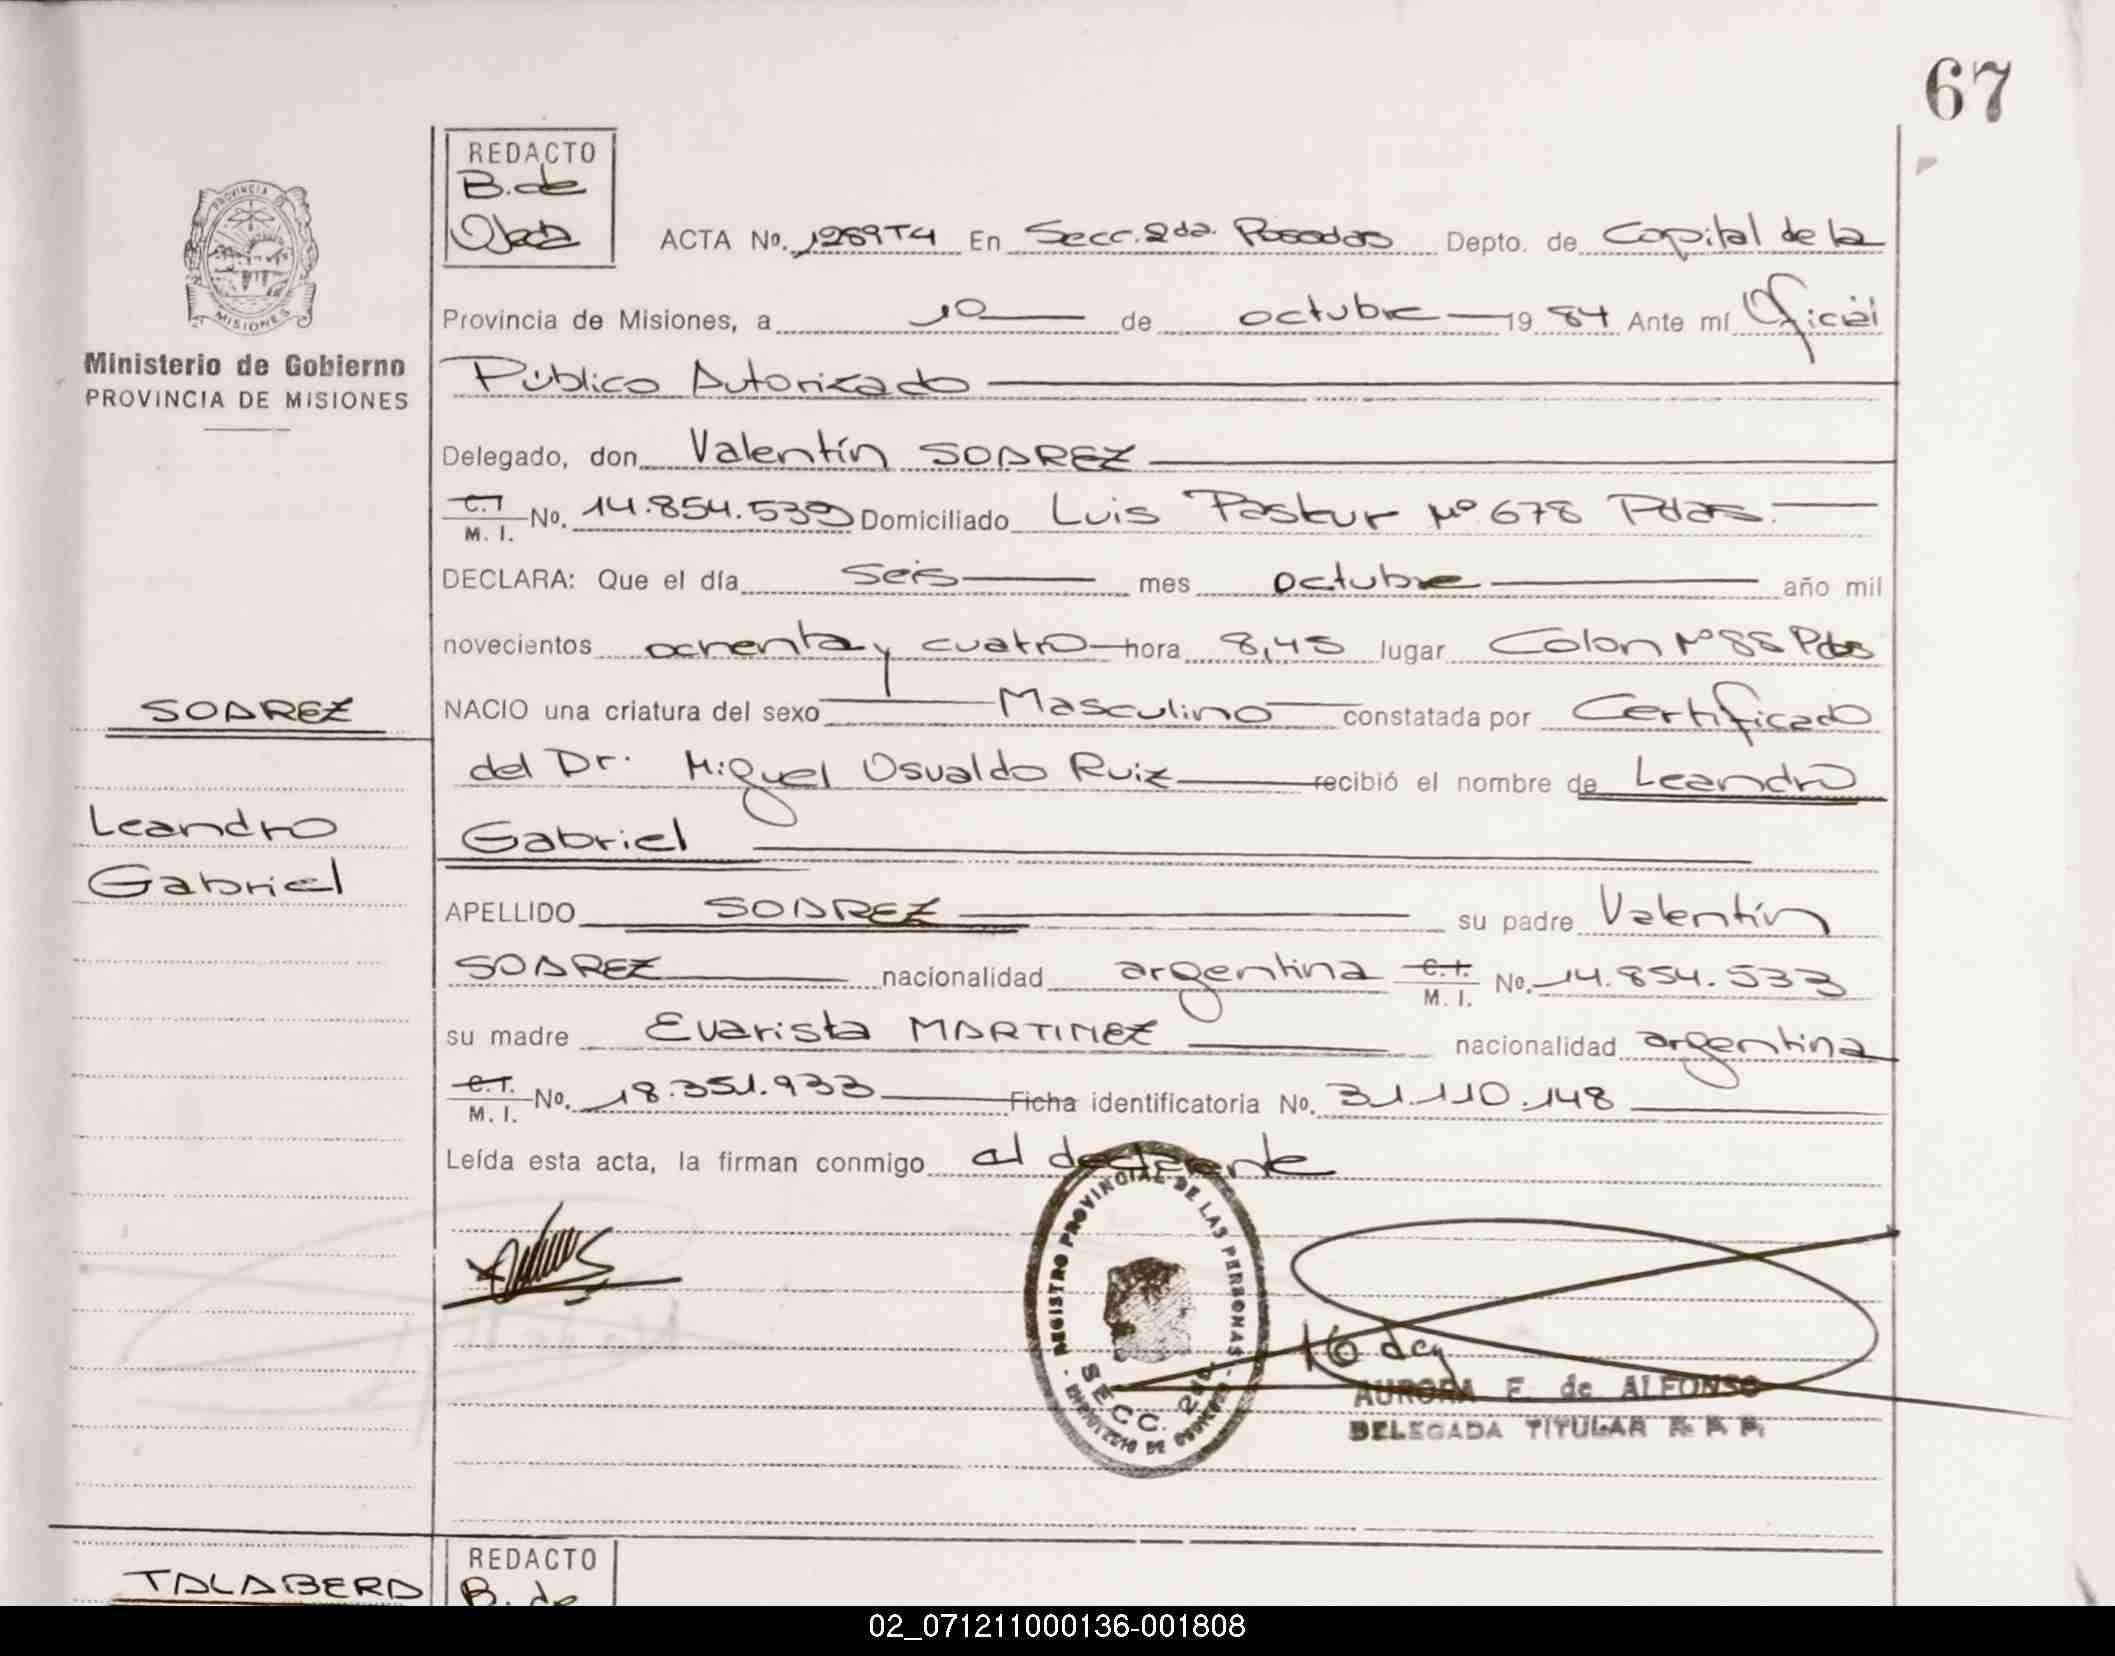 67
REDACTO
B. de
Ojeda
PROVINCIA DE
MISIONES
Ministerio de Gobierno
PROVINCIA DE MISIONES
ACTA No. 1289T4 En Secc. 2da. Posadas Depto. de Capital de la
Provincia de Misiones, a 10 de octubre 1984 Ante mí Oficial
Público Autorizado
Delegado, don Valentín SOAREZ
C.I
M. I. No. 14.854.533 Domiciliado Luis Pasteur Nº 678 Pdas.
DECLARA: Que el día seis mes octubre año mil
novecientos ochenta y cuatro hora 8,45 lugar Colon Nº 88 Pdas
SOAREZ
NACIO una criatura del sexo Masculino constatada por Certificado
del Dr. Miguel Osvaldo Ruiz recibió el nombre de Leandro
Leandro
Gabriel
Gabriel
APELLIDO SOAREZ su padre Valentín
SOAREZ nacionalidad argentina C.I. M. I. No. 14.854.533
su madre Evarista MARTINEZ nacionalidad argentina
C.I.
M. I. No. 18.351.933 Ficha identificatoria No. 31.110.148
Leída esta acta, la firman conmigo el declarante
REGISTRO PROVINCIAL DE LAS PERSONAS
SECC. 2da.
MINISTERIO DE GOBIERNO
AURORA F. de ALFONSO
DELEGADA TITULAR R. P. P.
TALABERA
REDACTO
B. de
02_071211000136-001808